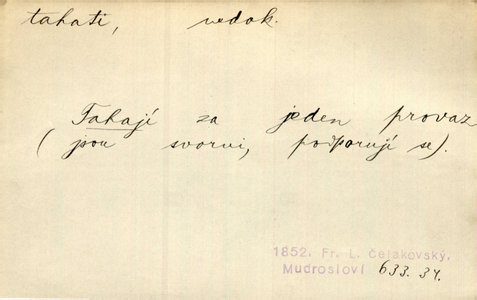 tahati, nedok.
Tahají za jeden provaz
(jsou svorni, podporují se).
1852. Fr. L. Čelakovský,
Mudrosloví 633.34.